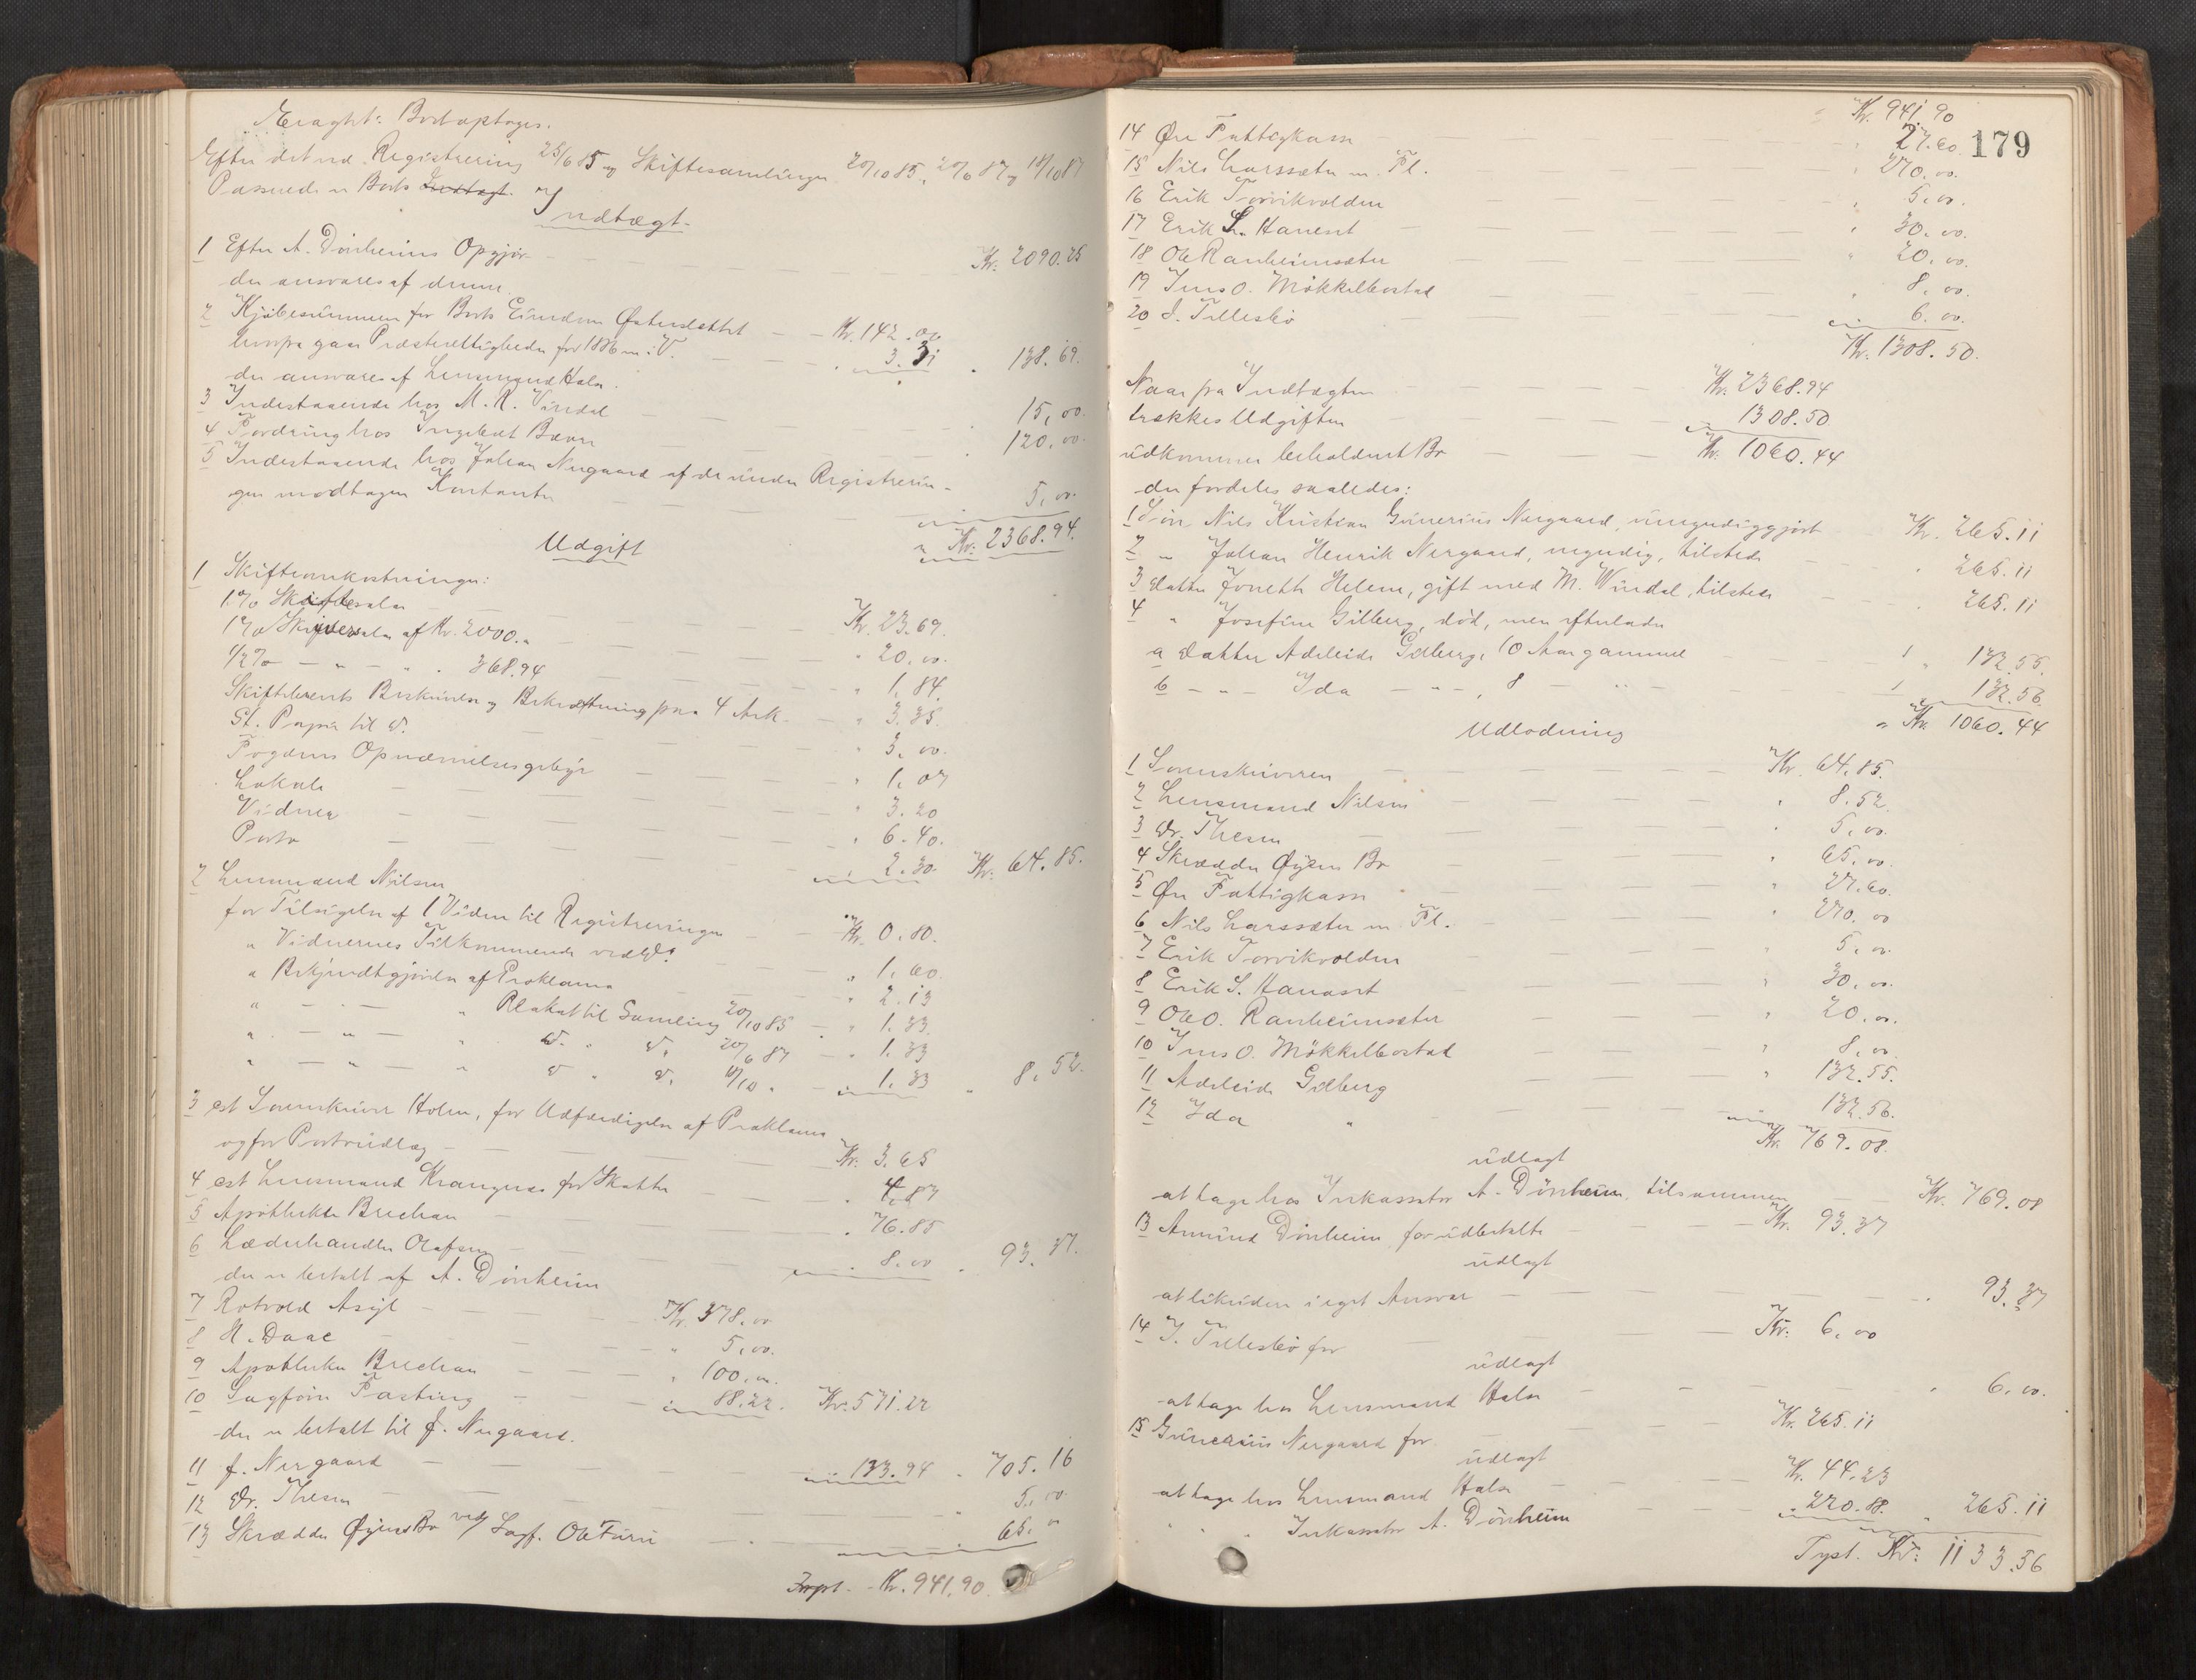 Efter det ved Registrering 25/6 85 og Skiftesamlinger 20/10 85, 20/6 87 og 18/10 87
Passerede er Boets Indtægt.
Indtægt.
1 Efter A. Dönheims Opgjør Kr. 2090.25
der ansvares af denne.
2 Kjøbesummen for Boets Eiendom Østerslettet Kr. 142.00
hvorfra gaar Præsterettigheder for 1886 m: V. 3.31 138.69.
der ansvares af Lensmand Halse.
3 Indestaaende hos M. R. Vindal 15,00.
4 Fordring hos Ingebrt Bævre 120.00.
5 Indestaaende hos Johan Nergaard af de under Registrerin-
gen modtagne Kontanter 5.00.
Kr. 2368.94.
Udgift
1 Skifteomkostninger:
1% Skiftesalær Kr. 23.69.
1% Skriversalær af Kr. 2000. 20.00.
1/2% - " - " 368.94 1.84.
Skiftebrevets Beskrivelse og Bekræftning paa 4 Ark. 3.35.
St. Papir til d. 3.00.
Fogdens Opnævnelsesgebyr 1.07
Lokale 3.20
Vidner 6.40.
Porto 2.30 Kr. 64.85.
2 Lensmand Nilsen
for Tilsigelse af 1 Vidne til Registreringen Kr. 0.80.
" Vidnernes Tilkommende ved d: 1.60.
" Bekjendtgjørelse af Proklama 2.13
" - " - " Plakat til Samling 20/10 85 1.33.
" - " - " d. " d. 20/6 87 1.33
" - " - " d " d. 18/10 " 1.33 8.52.
3 cst Sorenskriver Holm, for Udfærdigelse af Proklama
og for Portoudlæg Kr. 3.65
4 cst Lensmand Krangnes for Skatter 4.87
5 Apotheker Brechan 76.85
6 Læderhandler Olafsen 8.00 93.37.
der er betalt af A. Dönheim
7 Rotvold Asyl Kr. 378.00
8 H. Daae 5.00.
9 Apotheker Brechan 100.00.
10 Sagfører Fasting 88.22. Kr. 571.22
der er betalt til J. Nergaard.
11 J. Nergaard 133.94 705.16
12 Dr. Thesen 5.00.
13 Skrædder Øyens Bo ved Sagf. Ole Furu 65.00
Trspt. Kr. 941.90.
179
Kr. 941.90
14 Øre Fattigkasse 27.60.
15 Nils Larssæter m. Fl. 270.00.
16 Erik Torvikvolden 5.00.
17 Erik L. Haneset 30.00.
18 Ole Ranheimsæter 20.00.
19 Jens O. Mökkelbostad 8.00.
20 J. Tillesbö 6.00.
Kr. 1308.50.
Naar fra Indtægten Kr. 2368.94
trækkes Udgiften 1308.50
udkommer beholdent Bo Kr. 1060.44
der fordeles saaledes:
1 Søn Nils Kristian Gunerius Nergaard, umyndiggjort Kr. 265.11
2 " Johan Henrik Nergaard, myndig, tilstede 265.11
3 Datter Jonette Helene, gift med M. Vindal, tilstede 265.11
4 " Josefine Gilberg, død, men efterlader
a Datter Adeleide Gilberg, 10 Aar gammel 132.55.
b - " - Ida - " -, 8 - " 132.56
Kr. 1060.44
Udlodning
1 Sorenskriveren Kr. 64.85.
2 Lensmand Nilsen 8.52.
3 Dr. Thesen 5.00.
4 Skrædder Øyens Bo 65.00.
5 Øre Fattigkasse 27.60.
6 Nils Larssæter m. Fl. 270.00
7 Erik Torvikvolden 5.00.
8 Erik S. Hanaset 30.00.
9 Ole O. Ranheimsæter 20.00.
10 Jens O. Mökkelbostad 8.00
11 Adeleide Gilberg 132.55.
12 Ida " 132.56.
Kr. 769.08.
udlagt
at tage hos Inkassator A. Dönheim tilsammen Kr. 769.08
13 Amund Dönheim for udbetalte Kr. 93.37
udlagt
at likvidere i eget Ansvar 93.37
14 J. Tillesbö for Kr. 6.00
udlagt
at tage hos Lensmand Halse 6.00.
15 Gunerius Nergaard for Kr. 265.11
udlagt
at tage hos Lensmand Halse Kr. 44.23
" " " Inkassator A. Dönheim 220.88. 265.11
Tspt. Kr: 1133.56